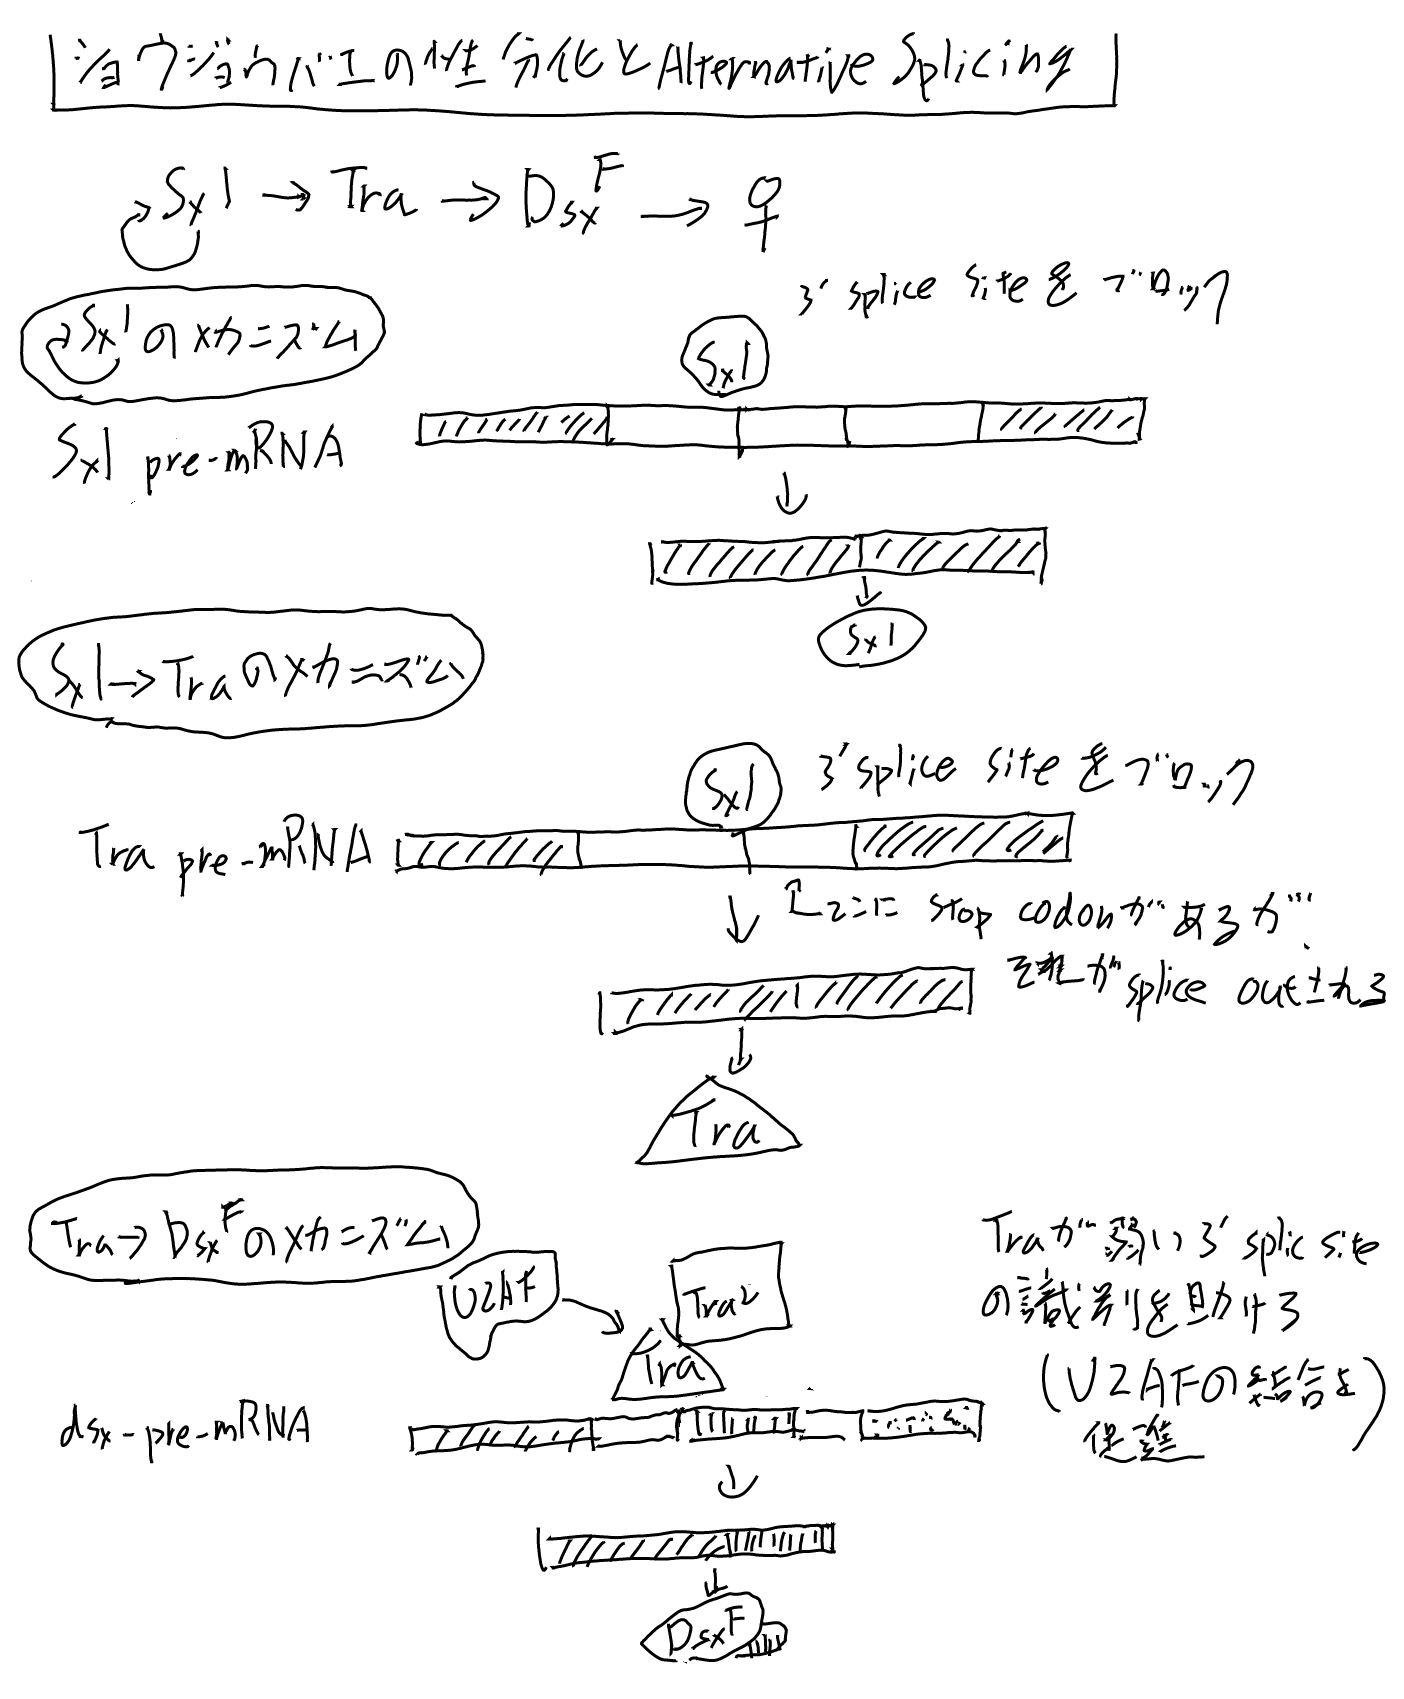 ショウジョウバエの性分化とAlternative Splicing
Sxl → Tra → Dsx^F → ♀
Sxlのメカニズム
3' splice siteをブロック
Sxl
Sxl pre-mRNA
Sxl
Sxl→Traのメカニズム
Sxl
3' splice siteをブロック
Tra pre-mRNA
ここに stop codonがあるが…
それがsplice outされる
Tra
Tra→Dsx^Fのメカニズム
U2AF
Tra2
Tra
Traが弱い3' splic site
の識別を助ける
(U2AFの結合を
促進)
dsx-pre-mRNA
DsxF